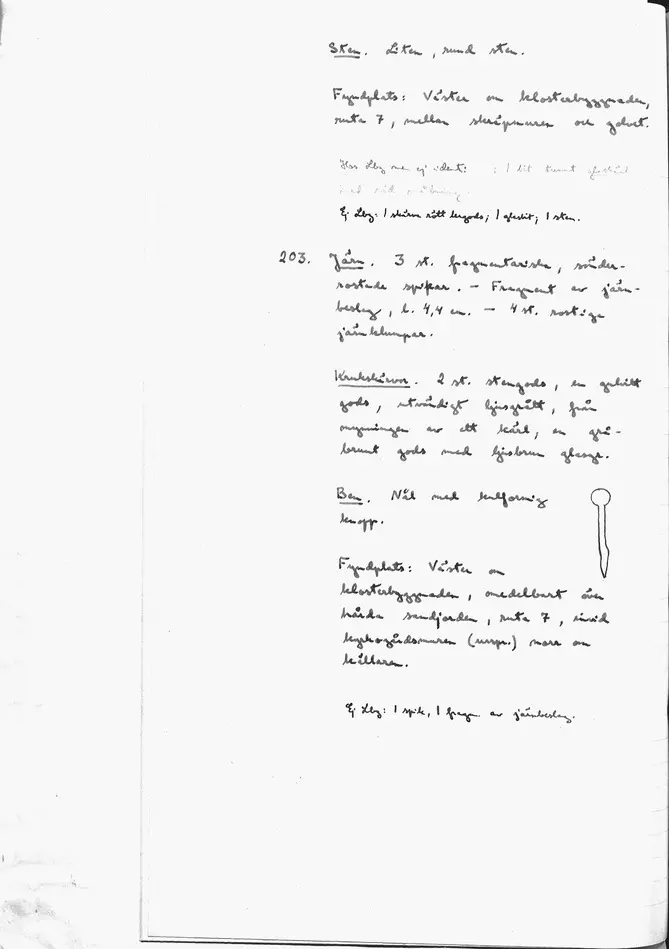 Sten. Liten, rund sten.
Fyndplats: Väster om klosterbyggnaden,
ruta 7, mellan skråpmuren och golvet.
Hos Lbg men ej ident: : 1 bit tunnt
med röd målning.
Ej Lbg: 1 skärva rött lergods; 1 glasbit; 1 sten.
203. Järn. 3 st. fragmentariska, sönder-
rostade spikar. – Fragment av järn-
beslag, l. 4,4 cm. – 4 st. rostiga
järnklumpar.
Krukskärvor. 2 st. stengods, en gulvitt
gods, utvändigt ljusgrått, från
mynningen av ett kärl, en grå-
brunt gods med ljusbrun glasyr.
Ben. Nål med kulformig
knopp.
Fyndplats: Väster om
klosterbyggnaden, omedelbart över
hårda sandjorden, ruta 7, invid
kyrkogårdsmuren (urspr.) norr om
källaren.
Ej Lbg: 1 spik, 1 fragm. av järnbeslag.